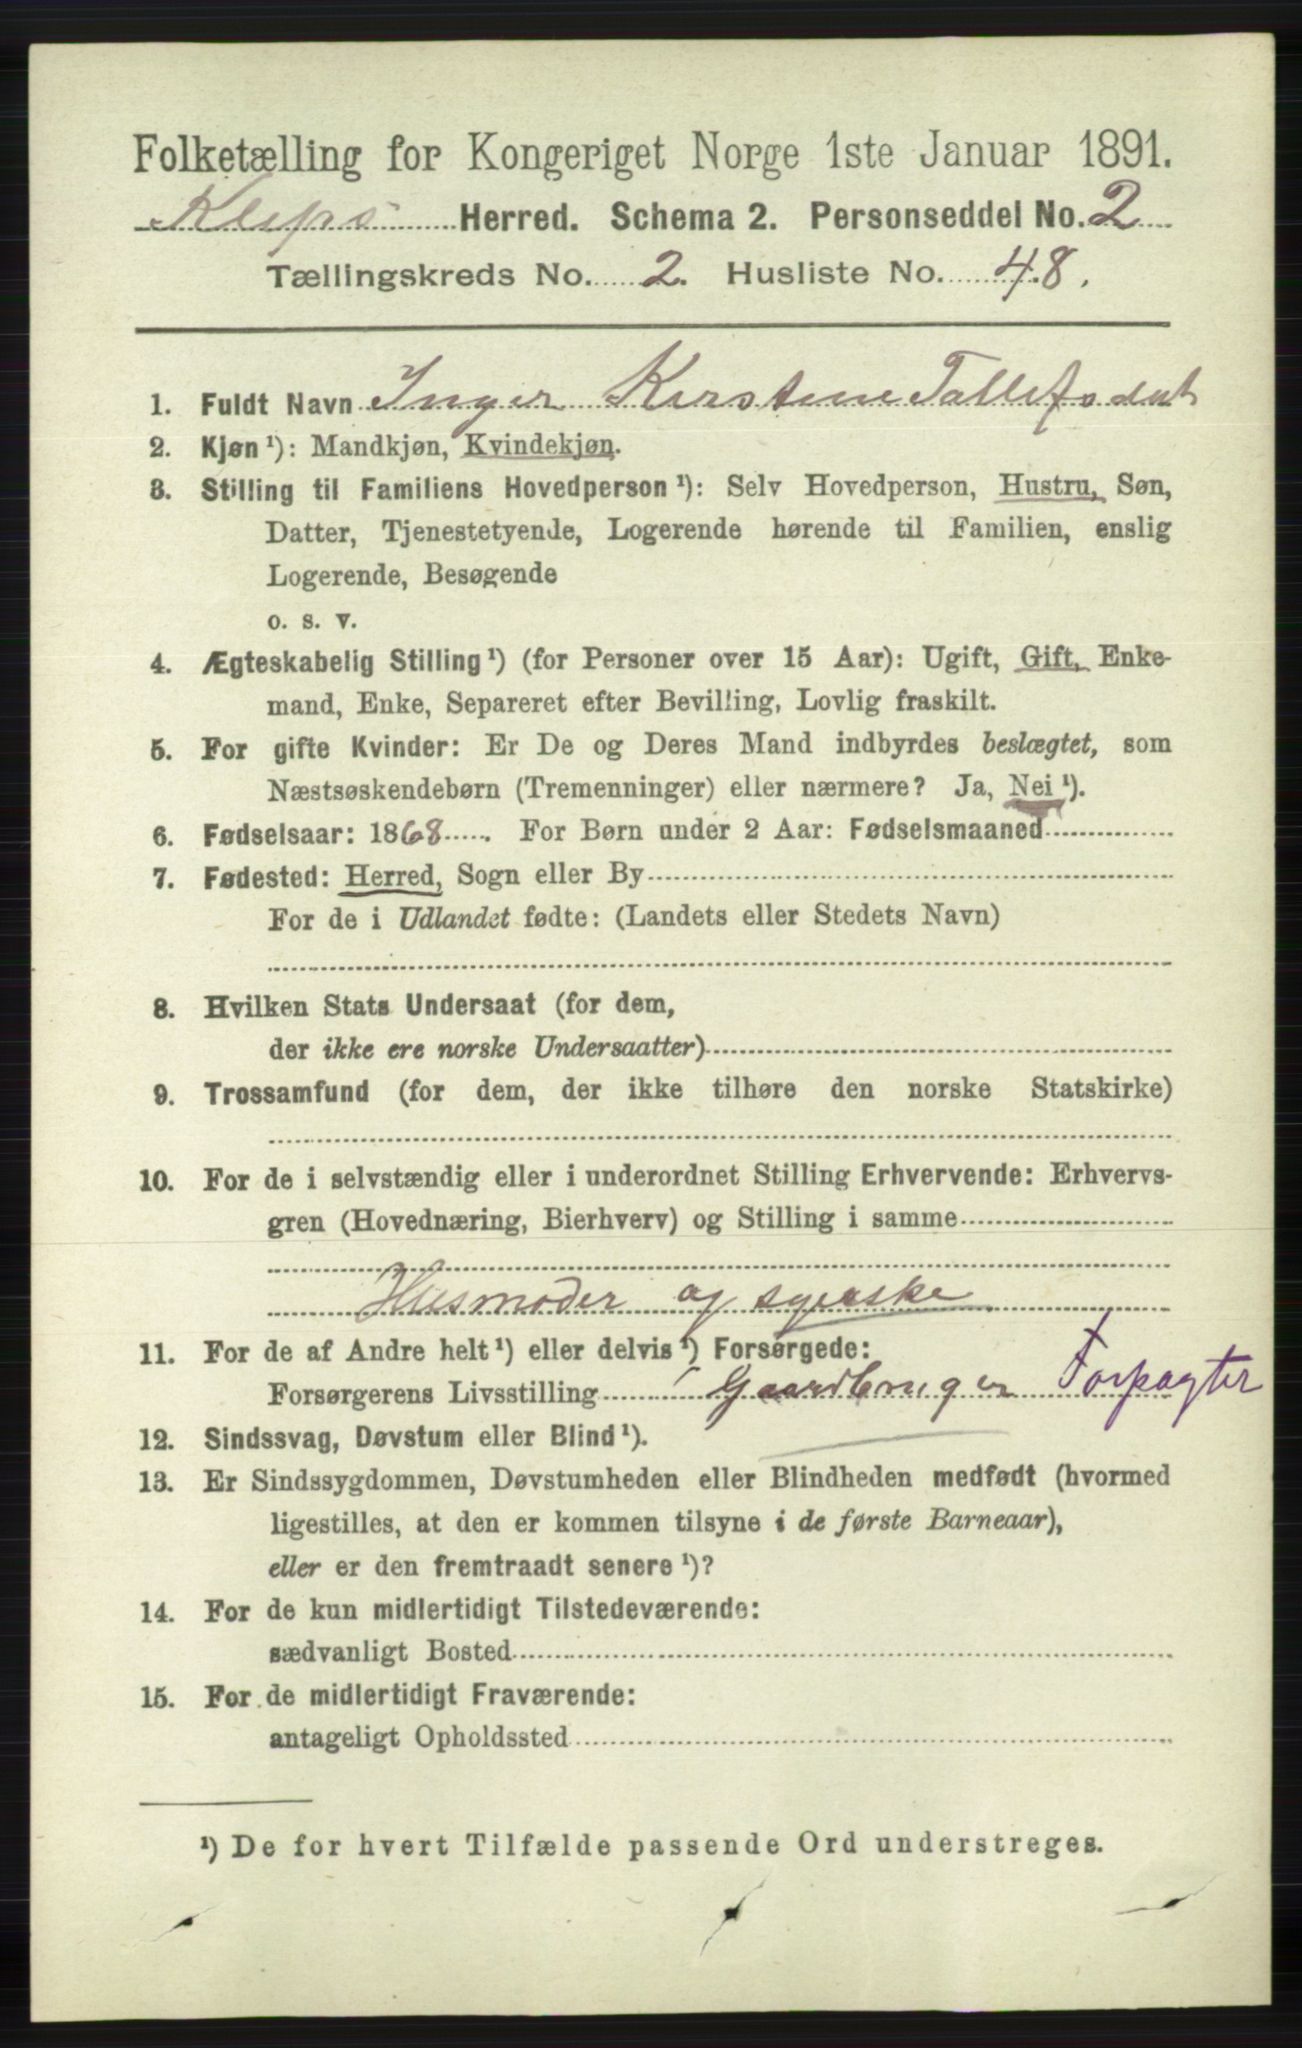 Folketælling for Kongeriget Norge 1ste Januar 1891.
Klepps Herred. Schema 2. Personseddel No. 2
Tællingskreds No. 2. Husliste No. 48.
1. Fuldt Navn Inger Kirstine Tallefsdat
2. Kjøn ¹): Mandkjøn, Kvindekjøn.
3. Stilling til Familiens Hovedperson ¹): Selv Hovedperson, Hustru, Søn,
Datter, Tjenestetyende, Logerende hørende til Familien, enslig
Logerende, Besøgende
o. s. v.
4. Ægteskabelig Stilling ¹) (for Personer over 15 Aar): Ugift, Gift, Enke-
mand, Enke, Separeret efter Bevilling, Lovlig fraskilt.
5. For gifte Kvinder: Er De og Deres Mand indbyrdes beslægtet, som
Næstsøskendebørn (Tremenninger) eller nærmere? Ja, Nei ¹).
6. Fødselsaar: 1868. For Børn under 2 Aar: Fødselsmaaned
7. Fødested: Herred, Sogn eller By
For de i Udlandet fødte: (Landets eller Stedets Navn)
8. Hvilken Stats Undersaat (for dem,
der ikke ere norske Undersaatter)
9. Trossamfund (for dem, der ikke tilhøre den norske Statskirke)
10. For de i selvstændig eller i underordnet Stilling Erhvervende: Erhvervs-
gren (Hovednæring, Bierhverv) og Stilling i samme
Husmoder og syerske
11. For de af Andre helt ¹) eller delvis ¹) Forsørgede:
Forsørgerens Livsstilling Gaardbruger Forpagter
12. Sindssvag, Døvstum eller Blind ¹).
13. Er Sindssygdommen, Døvstumheden eller Blindheden medfødt (hvormed
ligestilles, at den er kommen tilsyne i de første Barneaar),
eller er den fremtraadt senere ¹)?
14. For de kun midlertidigt Tilstedeværende:
sædvanligt Bosted
15. For de midlertidigt Fraværende:
antageligt Opholdssted
¹) De for hvert Tilfælde passende Ord understreges.